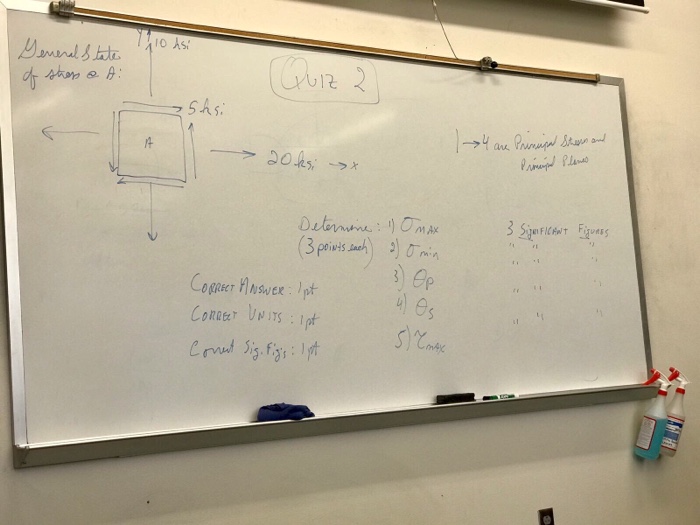 General State
of stress @ A:
Y 10 ksi
QUIZ 2
5 ksi
A
20 ksi → x
1→4 are Principal Stress and
Principal Planes
Determine: 1) σMAX
(3 points each) 2) σmin
3) θp
4) θs
5) τMAX
3 SIGNIFICANT FIGURES
" " "
" " "
" " "
" " "
CORRECT ANSWER: 1pt
CORRECT UNITS: 1pt
Correct Sig. Figs: 1pt